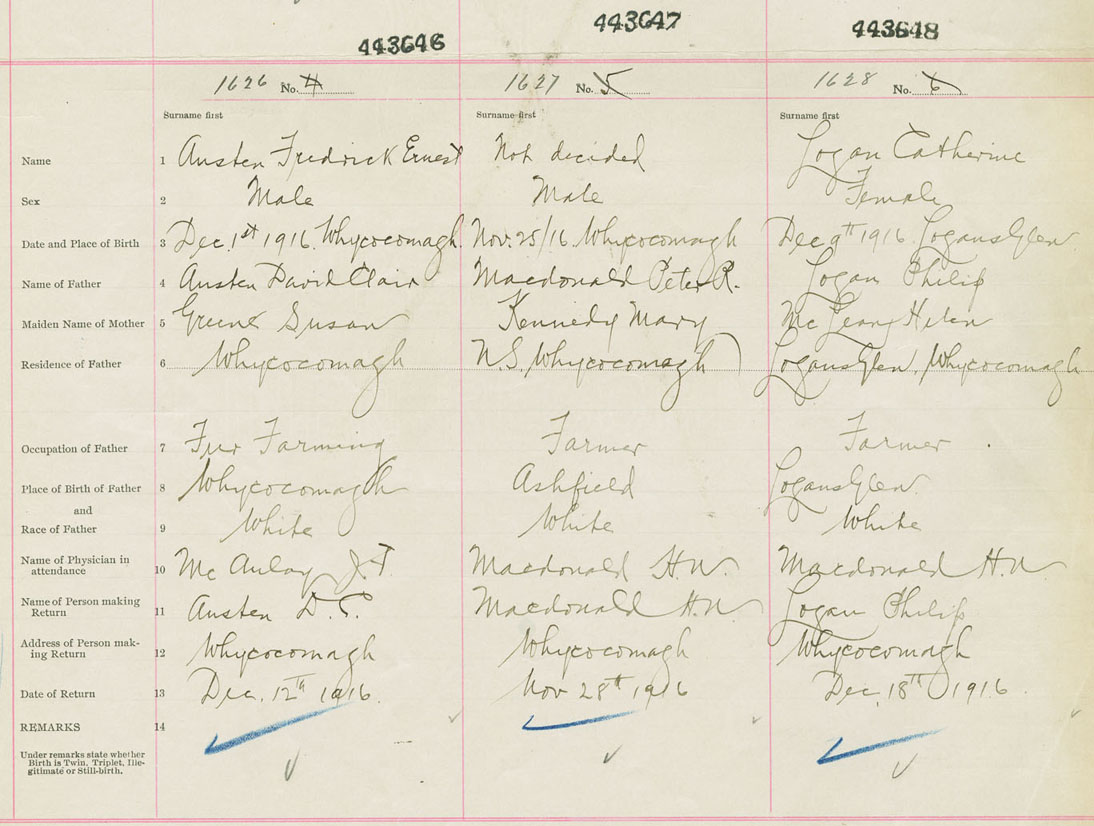 443646 443647 443648
1626 No. 4 1627 No. 5 1628 No. 6
Surname first Surname first Surname first
Name 1 Austen Fredrick Ernest Not decided Logan Catherine
Sex 2 Male Male Female
Date and Place of Birth 3 Dec. 1st 1916. Whycocomagh. Nov. 25/16. Whycocomagh Dec 9th 1916. Logans Glen
Name of Father 4 Austen David Clair Macdonald Peter R. Logan Philip
Maiden Name of Mother 5 Greene Susan Kennedy Mary Mc Lean Helen
Residence of Father 6 Whycocomagh N.S. Whycocomagh Logans Glen, Whycocomagh
Occupation of Father 7 Fur Farming Farmer Farmer
Place of Birth of Father 8 Whycocomagh Ashfield Logans Glen
and
Race of Father 9 White White White
Name of Physician in
attendance 10 Mc Aulay J.T. Macdonald H.N. Macdonald H.N
Name of Person making
Return 11 Austen D.C. Macdonald H.N Logan Philip
Address of Person mak-
ing Return 12 Whycocomagh Whycocomagh Whycocomagh
Date of Return 13 Dec. 12th 1916. Nov 28th 1916 Dec, 18th 1916.
REMARKS 14
Under remarks state whether
Birth is Twin, Triplet, Ille-
gitimate or Still-birth.